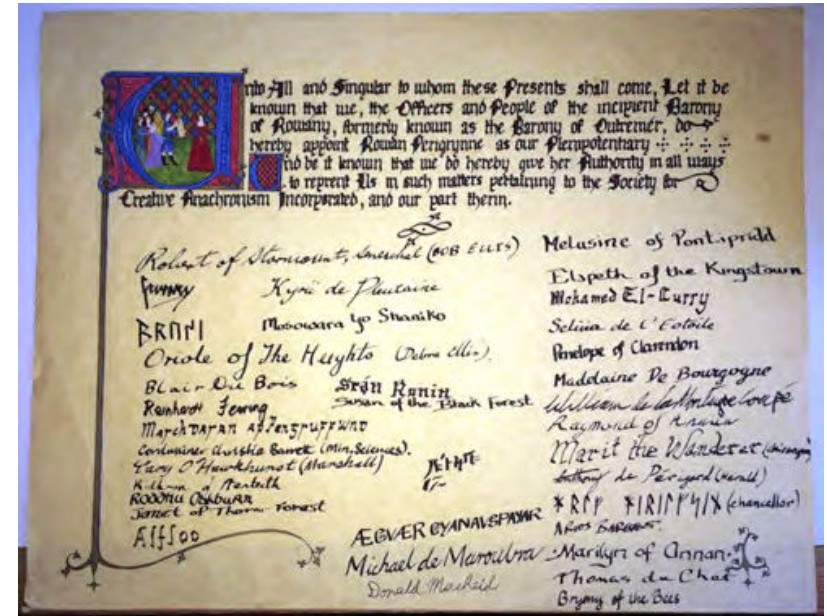 Unto All and Singular to whom these Presents shall come, Let it be
known that we, the Officers and People of the incipient Barony
of Rowany, formerly known as the Barony of Outremer, do
hereby appoint Rowan Perigrynne as our Plenipotentiary
And be it known that we do hereby give her Authority in all ways
to reprent Us in such matters pertaining to the Society for
Creative Anachronism Incorporated, and our part therin.
Robert of Stormount, Seneschal (BOB ELLIS)
Kyrie de
ᛒᚱᚢᚾᛁ
Yo Shaniko
Oriole of The Heights (Debra Ellis).
Blair Du Bois
Reinhardt
Susan of the Black Forest
Cordwainer Barrett (Min, Sciences).
O'Hawkhurst (Marshall)
of Menteith
Janet of Thorn Forest
ÆGVÆR
Michael de Maroubra
Donald Macheid
Melusine of Pontipridd
Elspeth of the Kingstown
Mohamed El-Curry
Selina de L'Estoile
Penelope of Clarendon
Madelaine De Bourgogne
William de la
Raymond of
Marit the Wanderer
de Périgord (Herald)
(chancellor)
Marilyn of Annan
Thomas du Chat
Bryony of the Bees